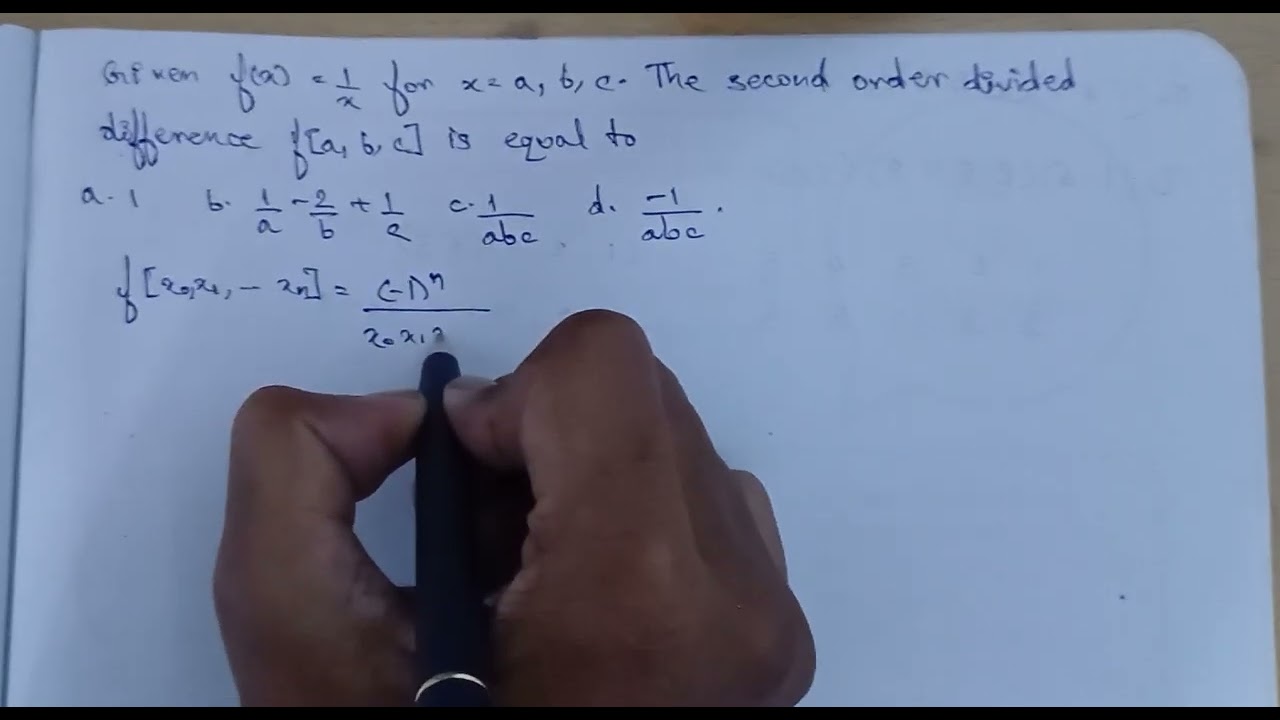 Given f(x) = 1/x for x = a, b, c. The second order divided
difference f[a, b, c] is equal to
a. 1 b. 1/a - 2/b + 1/c c. 1/abc d. -1/abc.
f[x₀, x₁, - xₙ] = (-1)ⁿ / x₀ x₁